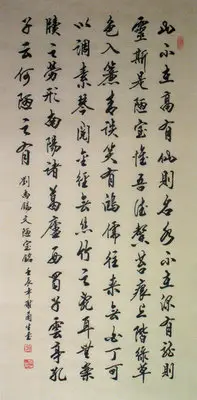 山不在高有仙則名水不在深有龍則
靈斯是陋室惟吾德馨苔痕上階綠草
色入簾青談笑有鴻儒往來無白丁可
以調素琴閱金經無絲竹之亂耳無案
牘之勞形南陽諸葛廬西蜀子雲亭孔
子云何陋之有 劉禹錫文陋室銘 壬辰年